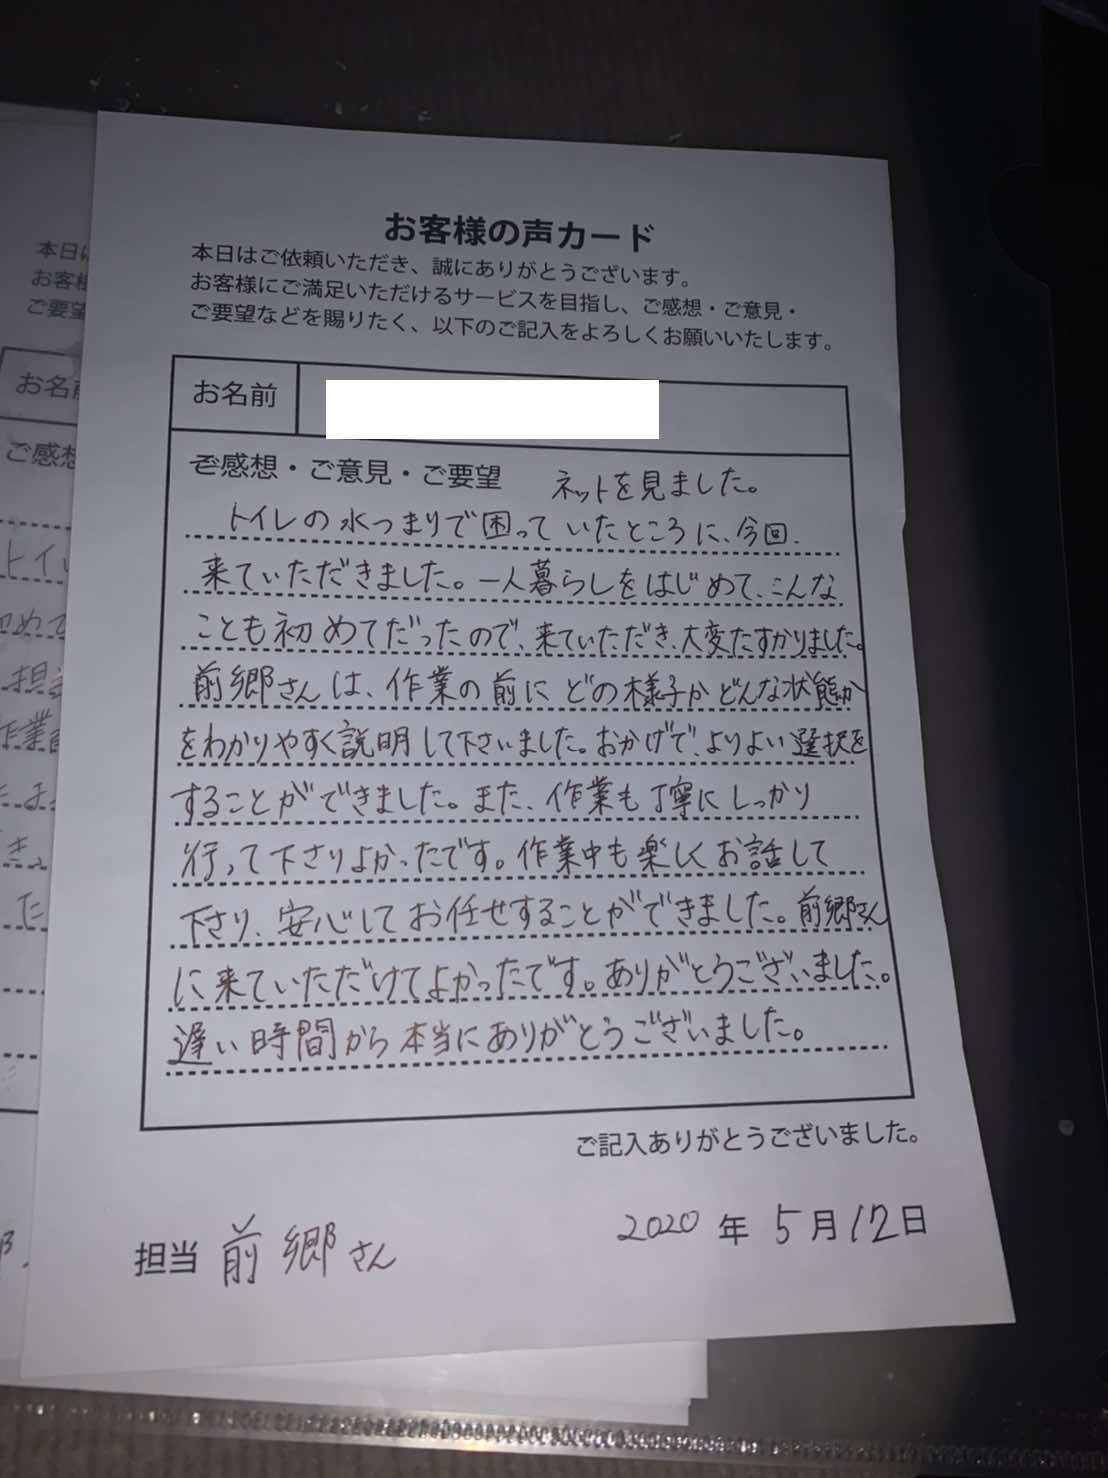 お客様の声カード
本日はご依頼いただき、誠にありがとうございます。
お客様にご満足いただけるサービスを目指し、ご感想・ご意見・
ご要望などを賜りたく、以下のご記入をよろしくお願いいたします。
お名前
ご感想・ご意見・ご要望 ネットを見ました。
トイレの水つまりで困っていたところに、今回、
来ていただきました。一人暮らしをはじめて、こんな
ことも初めてだったので、来ていただき、大変たすかりました。
前郷さんは、作業の前にどの様子かどんな状態か
をわかりやすく説明して下さいました。おかげで、よりよい選択を
することができました。また、作業も丁寧にしっかり
行って下さりよかったです。作業中も楽しくお話して
下さり、安心してお任せすることができました。前郷さん
に来ていただけてよかったです。ありがとうございました。
遅い時間から本当にありがとうございました。
ご記入ありがとうございました。
担当 前郷さん 2020年5月12日
本日
お客様
ご要望
お名前
ご感想
トイ
初めて
担当
作業
た